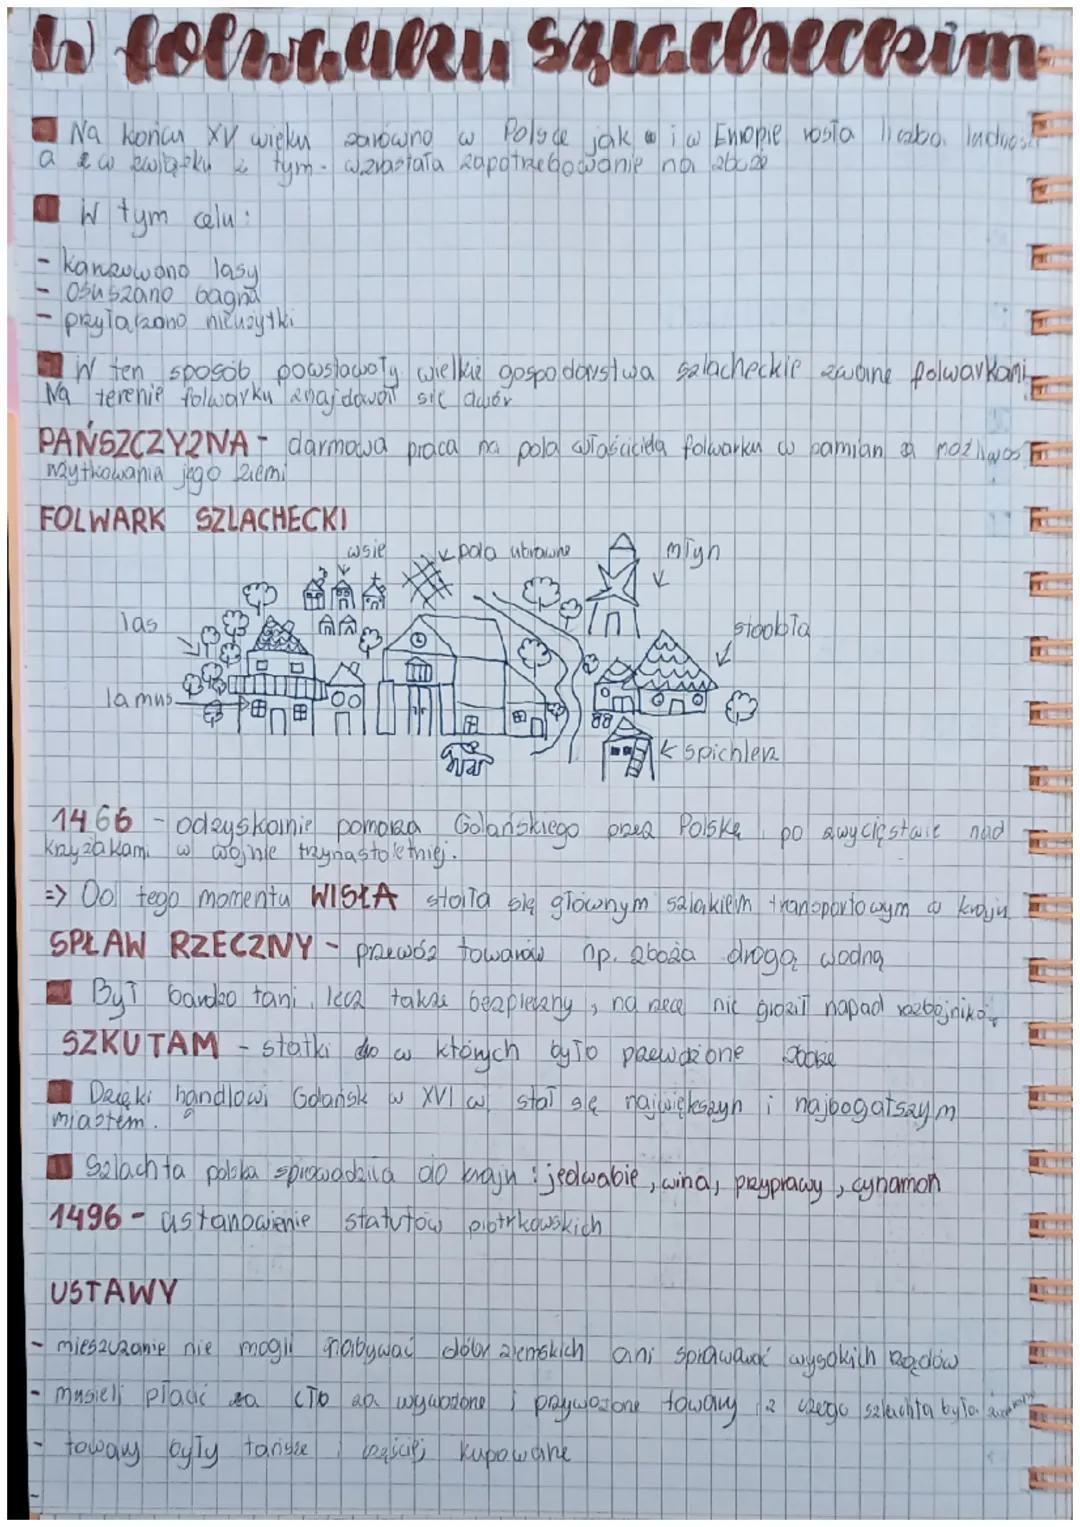 W folwarku szlacheckim
Na końcu XV wieku zarówno w Polsce jak i w Europie rosła liczba ludności
a w związku z tym - wzrastała zapotrzebowanie na zboże
W tym celu:
- karczowano lasy
- osuszano bagna
- przyłączono nieużytki
W ten sposób powstawały wielkie gospodarstwa szlacheckie zwane folwarkami
Na terenie folwarku znajdował się dwór
PAŃSZCZYZNA - darmowa praca na pola właściciela folwarku w zamian za możliwoś
użytkowania jego ziemi
FOLWARK SZLACHECKI
wsie
pola uprawne
młyn
las
stodoła
lamus
spichlerz
1466 - odzyskanie pomorza Gdańskiego przez Polskę po zwycięstwie nad
krzyżakami w wojnie trzynastoletniej.
=> Od tego momentu WISŁA stała się głównym szlakiem transportowym w kraju
SPŁAW RZECZNY - przewóz towarów np. zboża drogą wodną
Był bardzo tani, lecz także bezpieczny, na rzece nie groził napad rozbójników
SZKUTAM - statki do w których było przewożone zboże
Dzięki handlowi Gdańsk w XVI w. stał się największym i najbogatszym
miastem.
Szlachta polska sprowadziła do kraju: jedwabie, wina, przyprawy, cynamon
1496 - ustanowienie statutów piotrkowskich
USTAWY
- mieszczanie nie mogli nabywać dóbr ziemskich ani sprawować wysokich rzędów
- musieli płacić za cło za wywożone i przywożone towary z czego szlachta była
- towary były tańsze i częściej kupowane
-